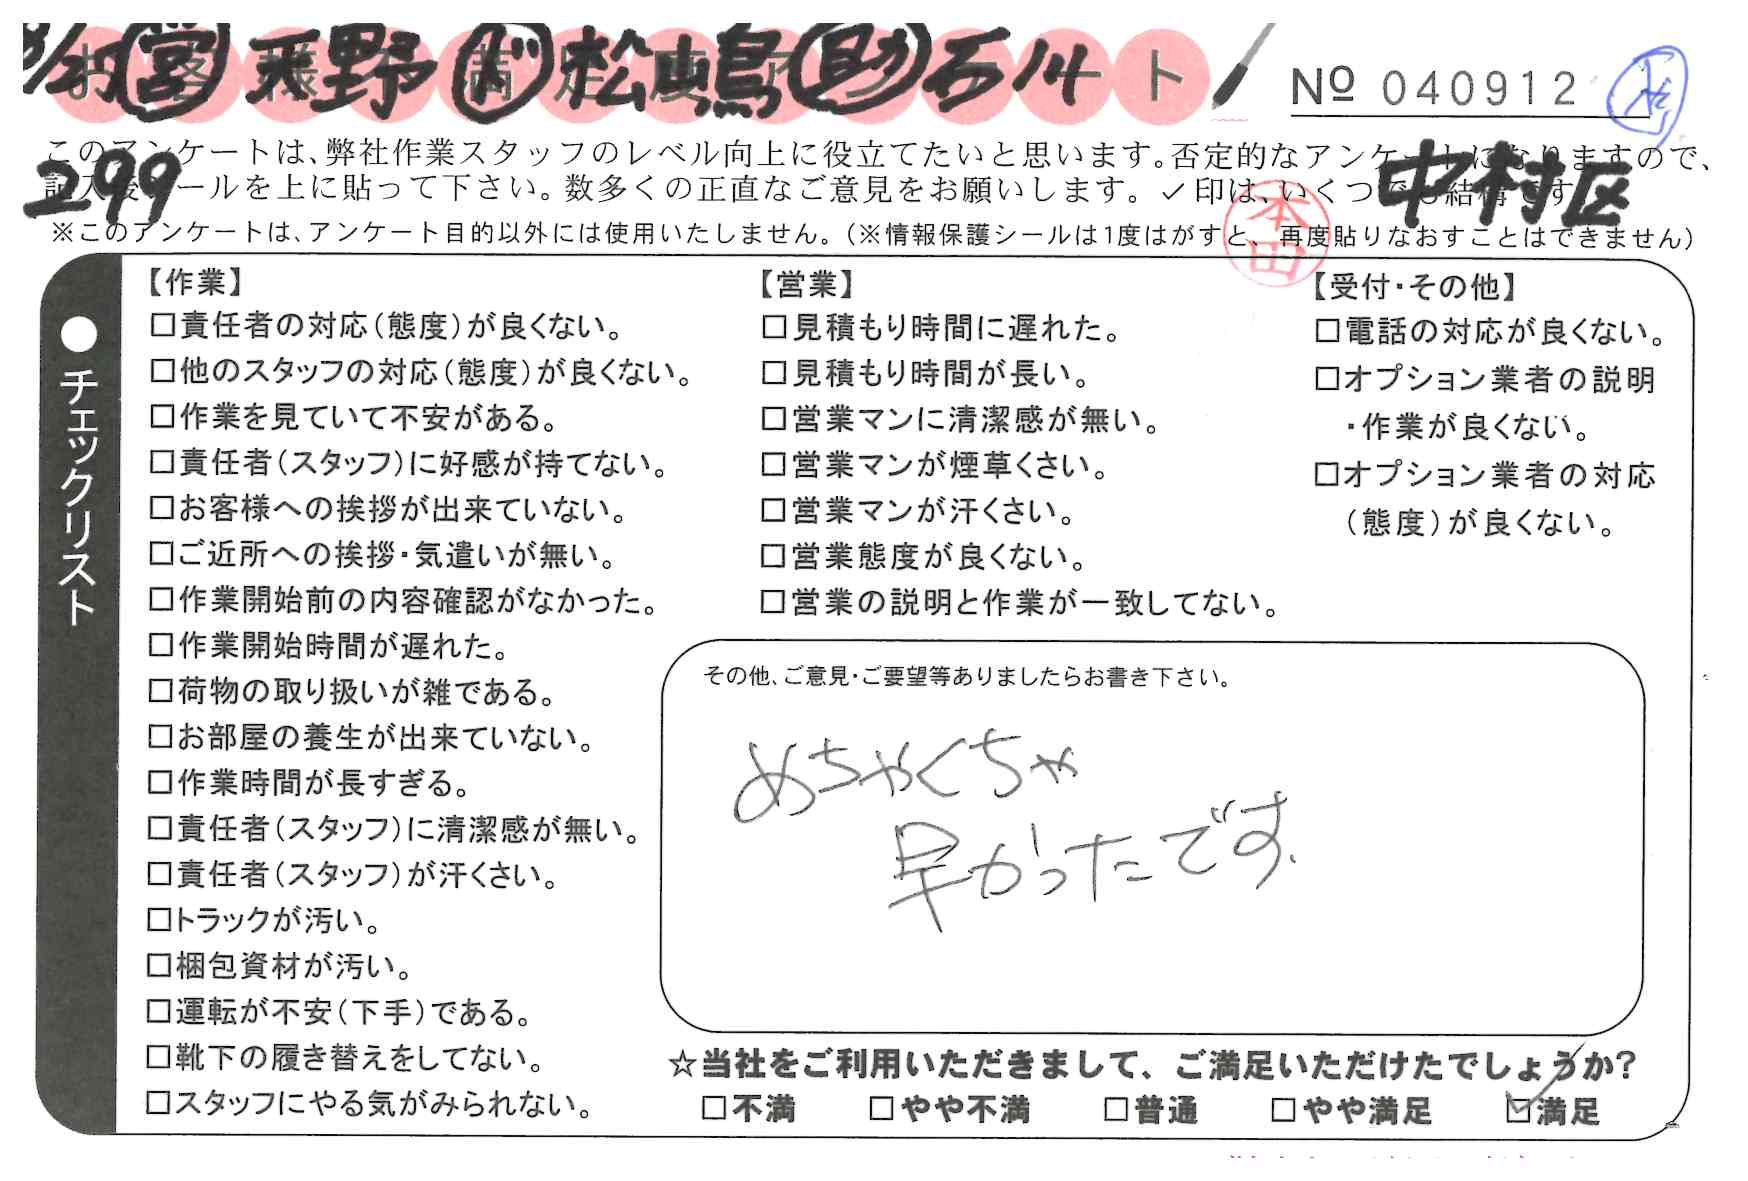 営 天野 ド 松嶋 助 石川
お客様不満足度アンケート
№ 040912
このアンケートは、弊社作業スタッフのレベル向上に役立てたいと思います。否定的なアンケートになりますので、
記入後シールを上に貼って下さい。数多くの正直なご意見をお願いします。✓印は、いくつでも結構です。
299
中村区
※このアンケートは、アンケート目的以外には使用いたしません。(※情報保護シールは1度はがすと、再度貼りなおすことはできません)
本田
●チェックリスト
【作業】
□責任者の対応(態度)が良くない。
□他のスタッフの対応(態度)が良くない。
□作業を見ていて不安がある。
□責任者(スタッフ)に好感が持てない。
□お客様への挨拶が出来ていない。
□ご近所への挨拶・気遣いが無い。
□作業開始前の内容確認がなかった。
□作業開始時間が遅れた。
□荷物の取り扱いが雑である。
□お部屋の養生が出来ていない。
□作業時間が長すぎる。
□責任者(スタッフ)に清潔感が無い。
□責任者(スタッフ)が汗くさい。
□トラックが汚い。
□梱包資材が汚い。
□運転が不安(下手)である。
□靴下の履き替えをしてない。
□スタッフにやる気がみられない。
【営業】
□見積もり時間に遅れた。
□見積もり時間が長い。
□営業マンに清潔感が無い。
□営業マンが煙草くさい。
□営業マンが汗くさい。
□営業態度が良くない。
□営業の説明と作業が一致してない。
【受付・その他】
□電話の対応が良くない。
□オプション業者の説明
・作業が良くない。
□オプション業者の対応
(態度)が良くない。
その他、ご意見・ご要望等ありましたらお書き下さい。
めちゃくちゃ
早かったです.
☆当社をご利用いただきまして、ご満足いただけたでしょうか?
□不満 □やや不満 □普通 □やや満足 ☑満足